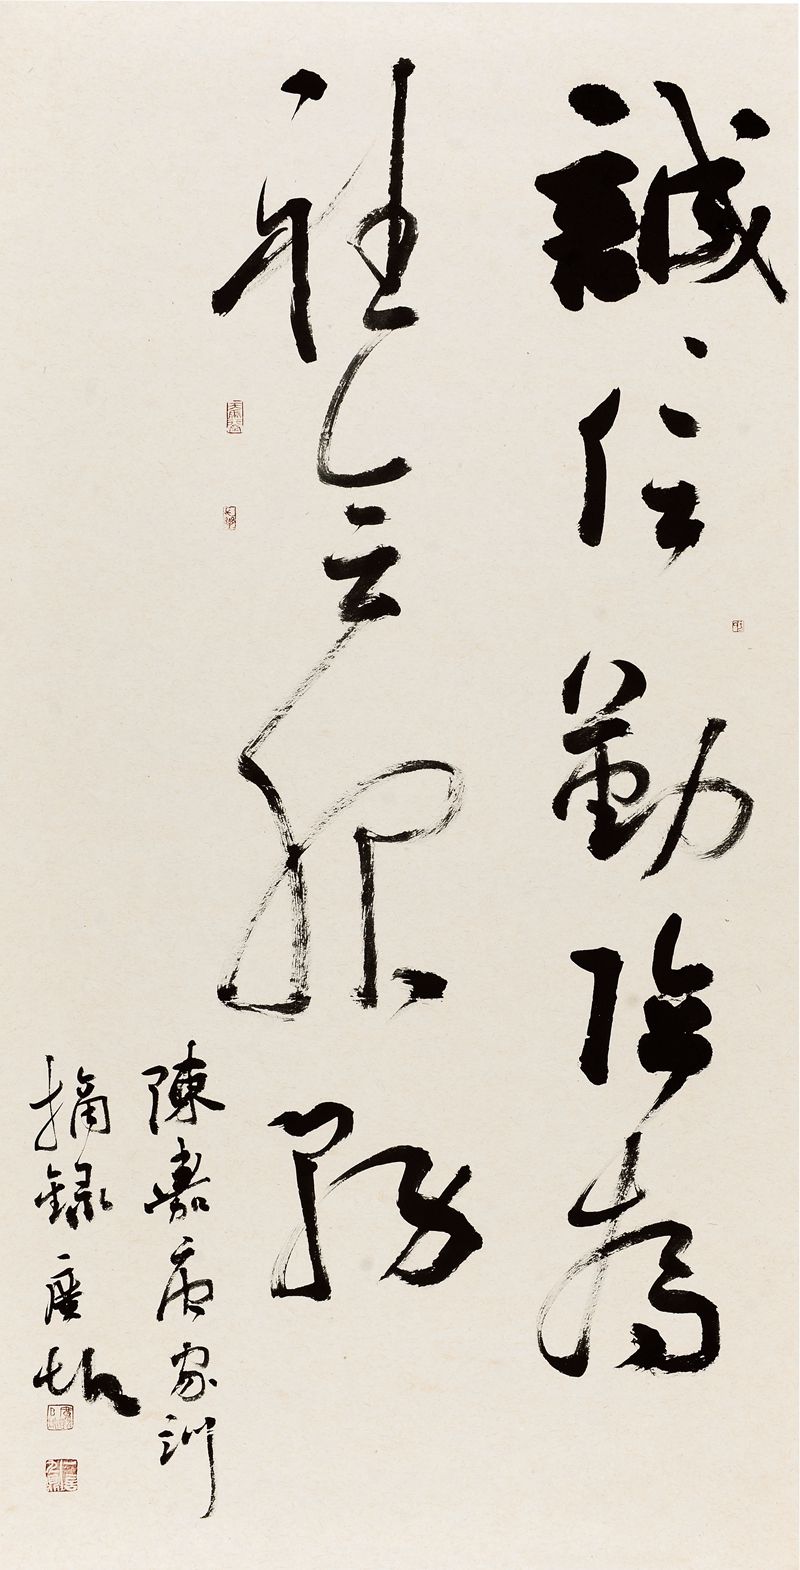 誠信勤儉為
社會服務
陳嘉庚家訓
摘錄廣